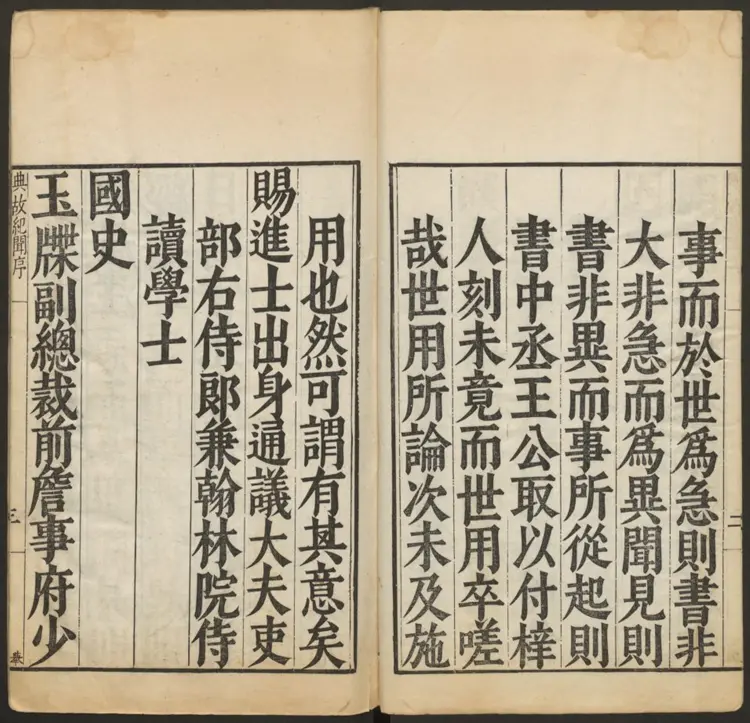 事而於世爲急則書非
大非急而爲異聞見則
書非異而事所從起則
書中丞王公取以付梓
人刻未竟而世用卒嗟
哉世用所論次未及施
二
用也然可謂有其意矣
賜進士出身通議大夫吏
部右侍郎兼翰林院侍
讀學士
國史
玉牒副總裁前詹事府少
典故紀聞序
三